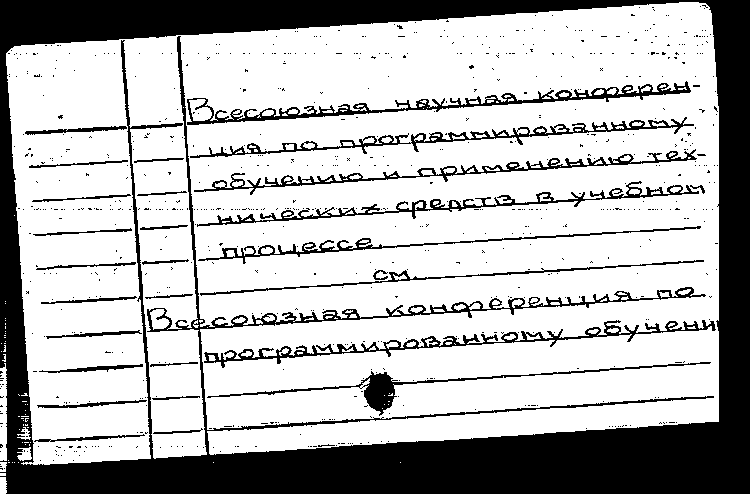 Всесоюзная научная конферен-
ция по программированному
обучению и применению тех-
нических средств в учебном
процессе.
см.
Всесоюзная конференция по
программированному обучени